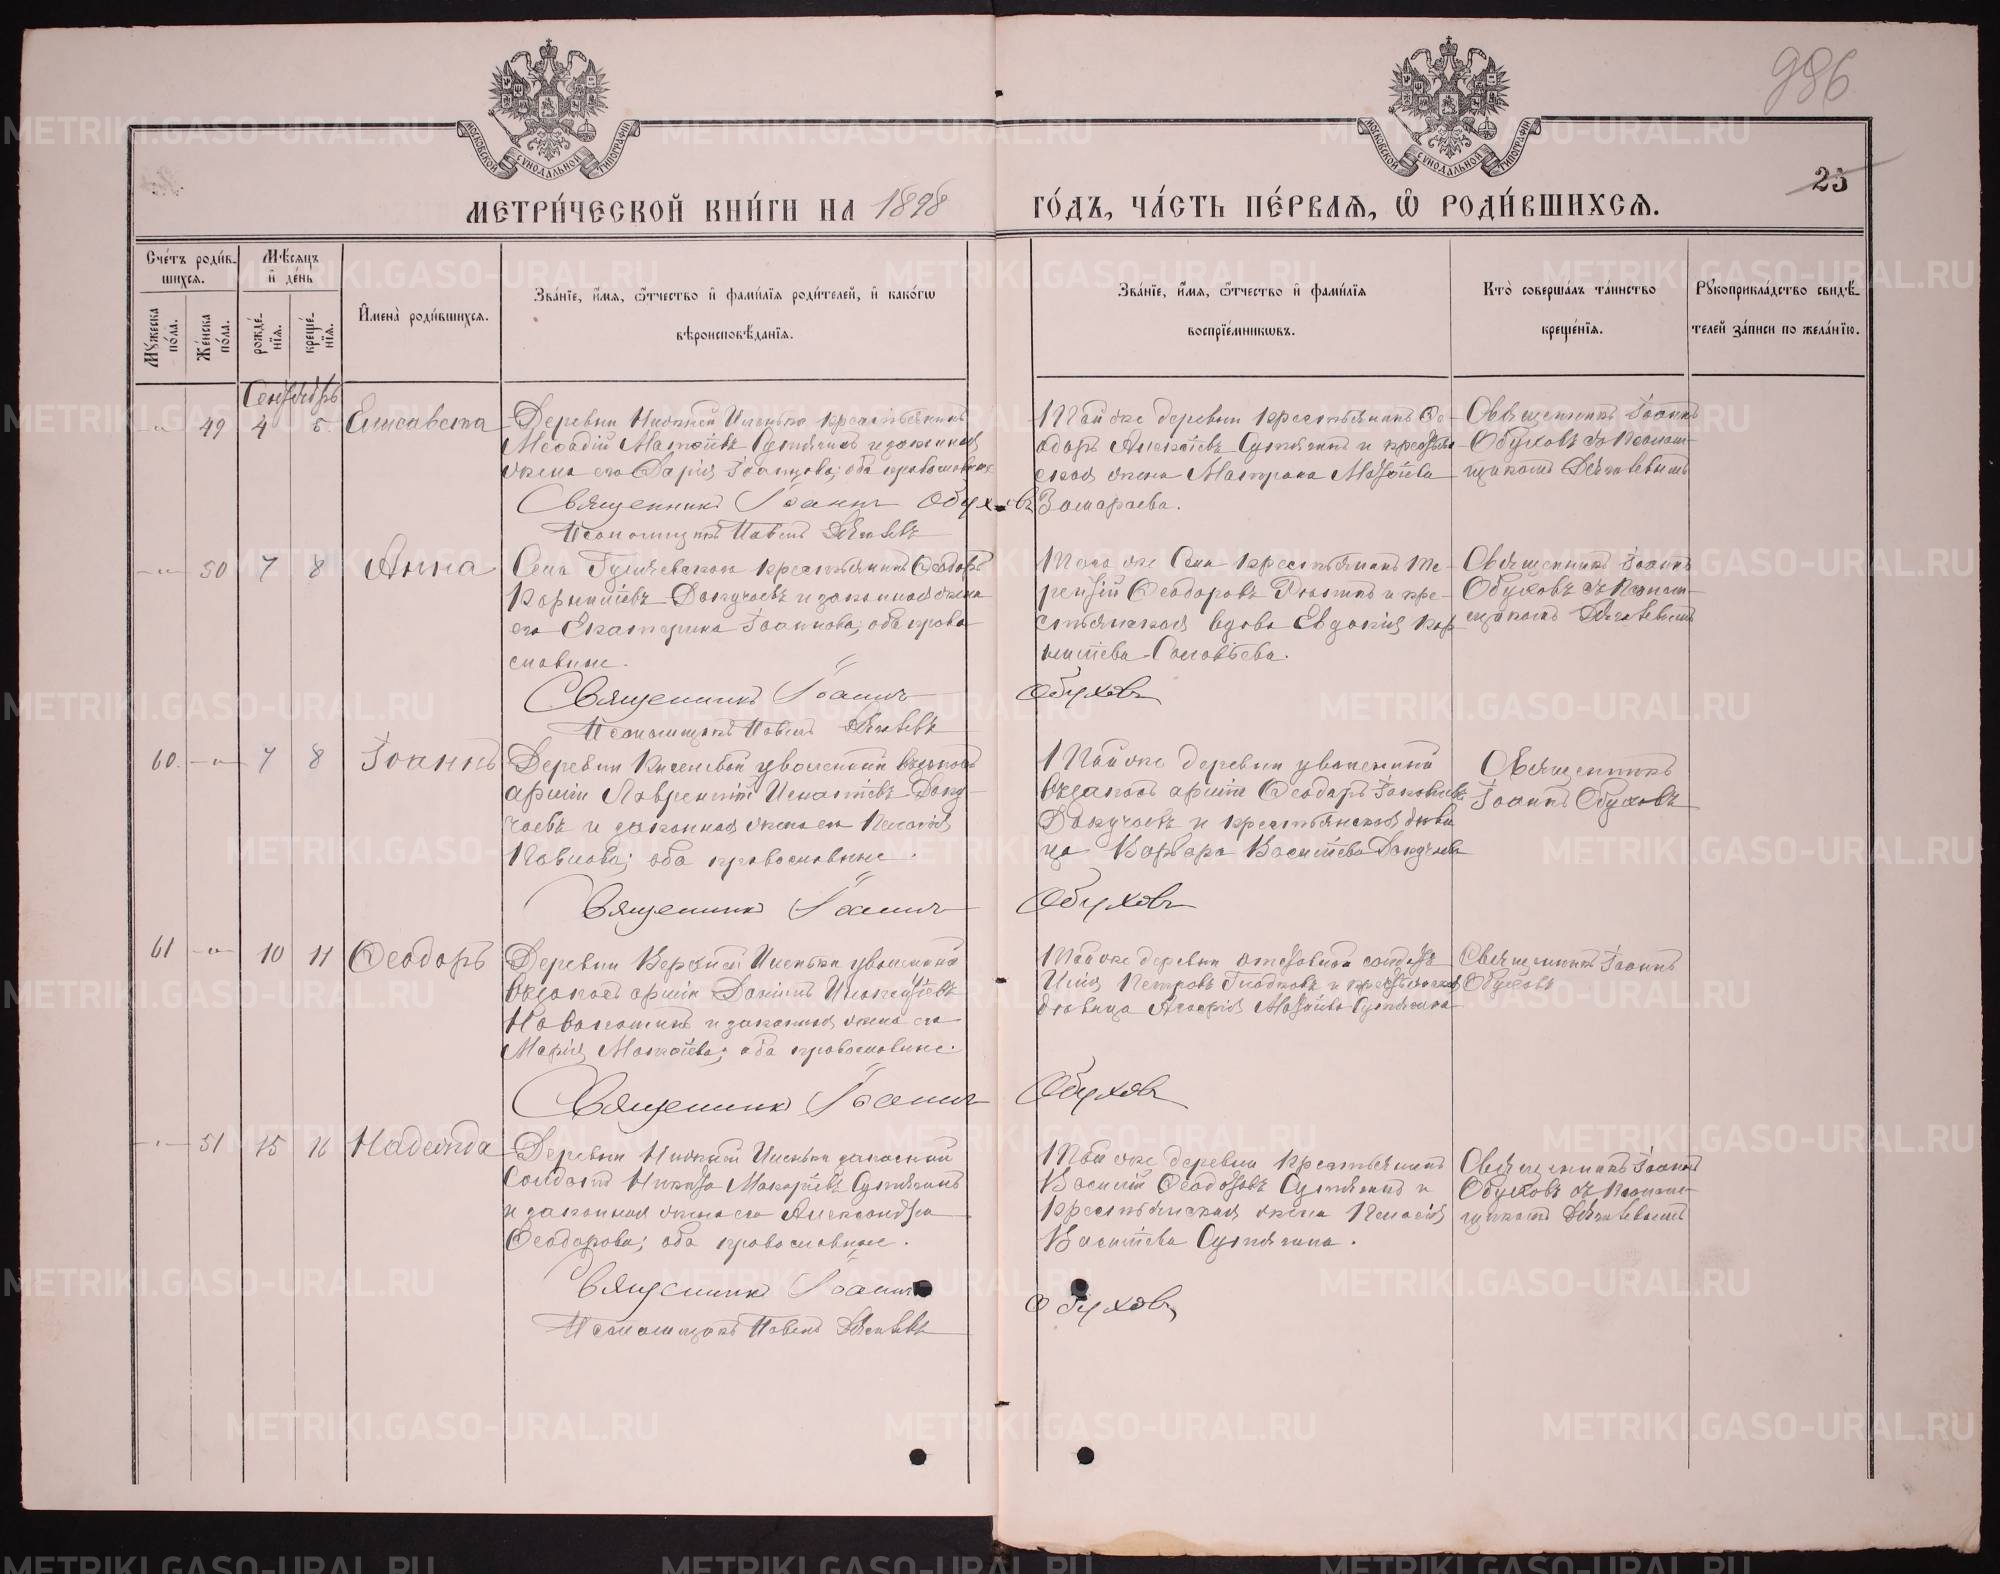 986
МОСКОВСКОЙ СѴНОДАЛЬНОЙ ТИПОГРАФІИ
МОСКОВСКОЙ СѴНОДАЛЬНОЙ ТИПОГРАФІИ
25
МЕТРИ́ЧЕСКОЙ КНИ́ГИ НА 1898 ГО́ДЪ, ЧА́СТЬ ПЕ́РВАѦ, Ѡ РОДИ́ВШИХСѦ.
Сче́тъ роди́в-
шихсѧ.
Мѣ́сѧцъ
и҆ де́нь
Мꙋ́жеска по́ла.
Же́нска по́ла.
рожде́-
нїѧ.
креще́-
нїѧ.
И҆мена̀ роди́вшихсѧ.
Зва́нїе, и҆́мѧ, ѻ҆́тчество и҆ фами́лїѧ роди́телей, и҆ како́гѡ
вѣроисповѣ́данїѧ.
Зва́нїе, и҆́мѧ, ѻ҆́тчество и҆ фами́лїѧ
воспрїе́мникѡвъ.
Кто̀ соверша́лъ та́инство
креще́нїѧ.
Рꙋкоприкла́дство свидѣ́-
телей за́писи по жела́нїю.
Сентябрь
49 4 5 Елисавета
Деревни Нижней Иленьки крестьянинъ
Меѳодій Матѳіевъ Сутягинъ и законная
жена его Дарія Іоаннова; оба православные
Священникъ Іоаннъ Обуховъ
Псаломщикъ Павелъ
Той же деревни крестьянинъ Ѳе-
одоръ Алексіевъ Сутягинъ и крестьян
ская жена Матрона Матѳіева
Замараева.
Священникъ Іоаннъ
Обуховъ съ Псалом-
щикомъ
50 7 8 Анна
Села крестьянинъ Ѳеодоръ
Корниліевъ Докучаевъ и законная жена
его Екатерина Іоаннова; оба право
славные.
Священникъ Іоаннъ Обуховъ
Псаломщикъ Павелъ
Того же Села крестьянинъ Те-
рентій Ѳеодоровъ и кре-
стьянская вдова Евдокія Кор
ниліева Соловьева.
Священникъ Іоаннъ
Обуховъ съ Псалом-
щикомъ
60. 7 8 Іоаннъ
Деревни Киселевой уволенный въ запасъ
арміи Лаврентій Игнатіевъ Доку-
чаевъ и законная жена его Пелагія
Павлова; оба православные.
Священникъ Іоаннъ Обуховъ
Той же деревни уволенный
въ запасъ арміи Ѳеодоръ Іаковлевъ
Докучаевъ и крестьянская дѣви
ца Варвара Василіева Докучаева
Священникъ
Іоаннъ Обуховъ
61 10 11 Ѳеодоръ
Деревни Верхней Иленьки уволенный
въ запасъ арміи Даніилъ
и законная жена его
Марія Матѳіева; оба православные.
Священникъ Іоаннъ Обуховъ
Той же деревни отставной солдатъ
Илія Петровъ Гладковъ и крестьянская
дѣвица Агафія Матѳіева Сутягина
Священникъ Іоаннъ
Обуховъ
51 15 16 Надежда
Деревни Нижней Иленьки запасный
солдатъ Никита Макаріевъ Сутягинъ
и законная жена его Александра
Ѳеодорова; оба православные.
Священникъ Іоаннъ Обуховъ
Псаломщикъ Павелъ
Той же деревни крестьянинъ
Василій Ѳеодоровъ Сутягинъ и
крестьянская жена Пелагія
Василіева Сутягина.
Священникъ Іоаннъ
Обуховъ съ Псалом-
щикомъ
METRIKI.GASO-URAL.RU